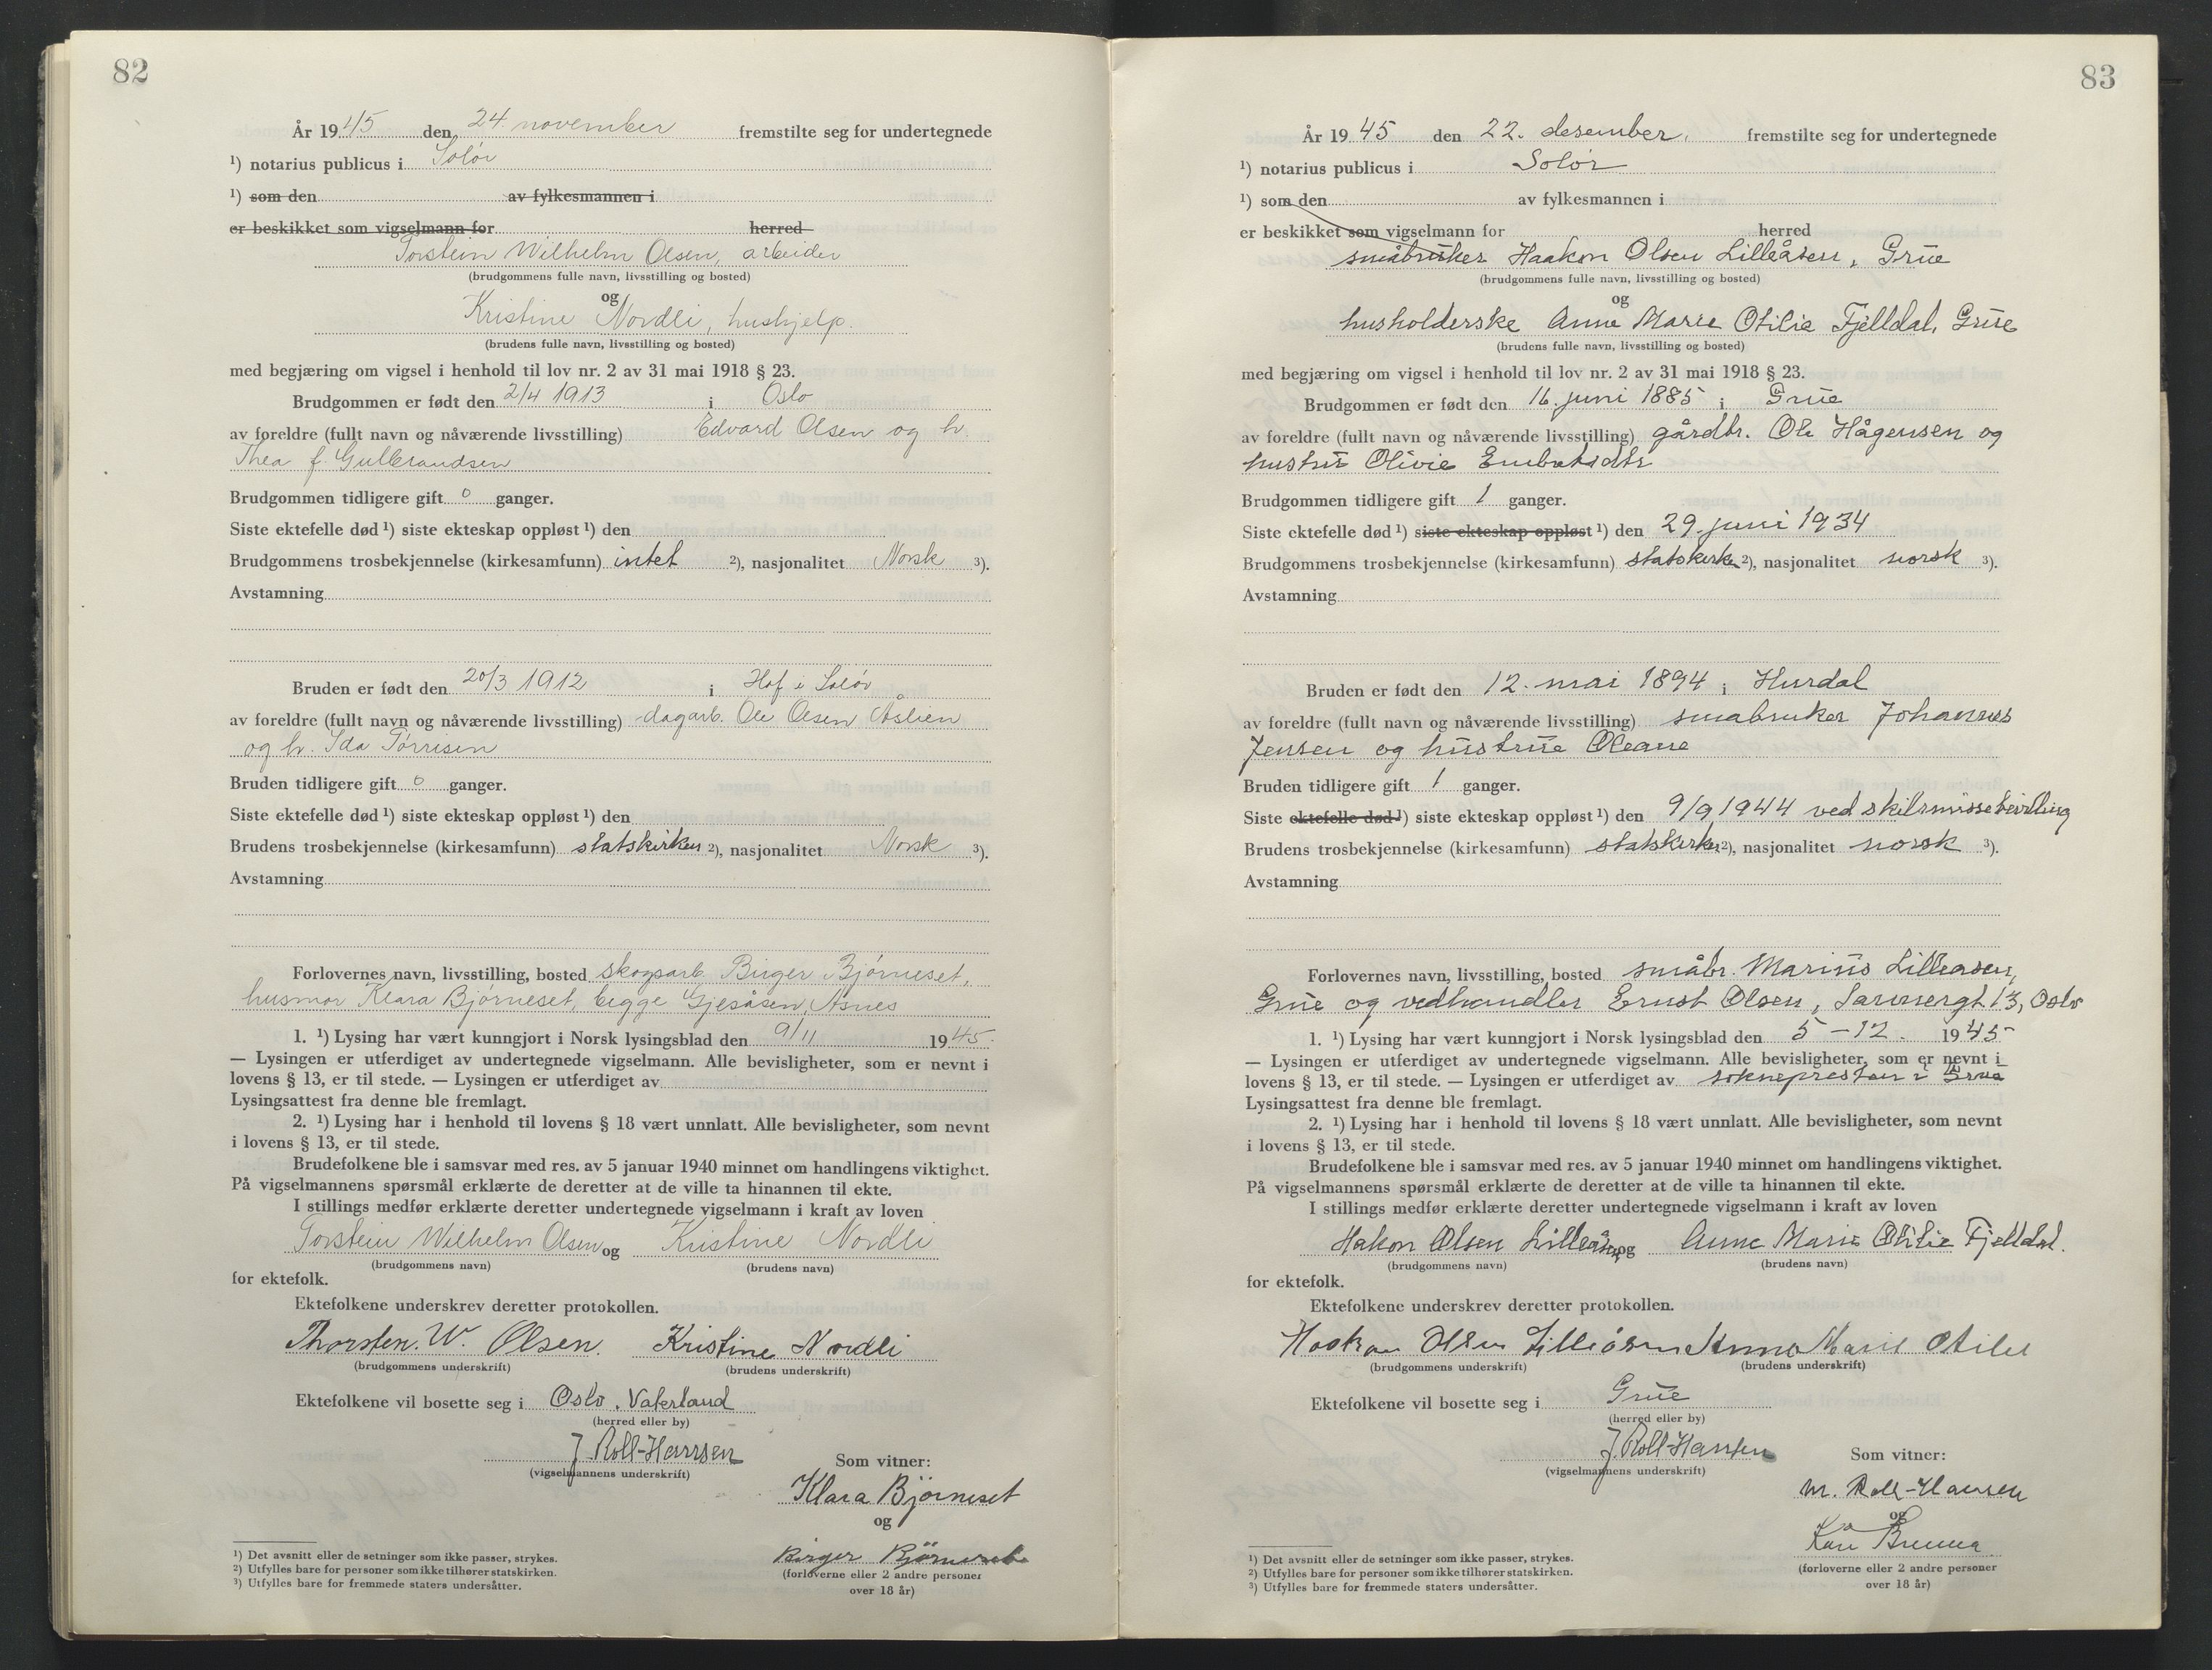 82
År 1945 den 24. november fremstilte seg for undertegnede
¹) notarius publicus i Solør
¹) som den av fylkesmannen i
er beskikket som vigselmann for herred
Torstein Wilhelm Olsen, arbeider
(brudgommens fulle navn, livsstilling og bosted)
og
Kristine Nordli, hushjelp.
(brudens fulle navn, livsstilling og bosted)
med begjæring om vigsel i henhold til lov nr. 2 av 31 mai 1918 § 23.
Brudgommen er født den 2/4 1913 i Oslo
av foreldre (fullt navn og nåværende livsstilling) Edvard Olsen og h.
Thea f. Gulbrandsen
Brudgommen tidligere gift 0 ganger.
Siste ektefelle død ¹) siste ekteskap oppløst ¹) den
Brudgommens trosbekjennelse (kirkesamfunn) intet ²), nasjonalitet Norsk ³).
Avstamning
Bruden er født den 20/3 1912 i Hof i Solør
av foreldre (fullt navn og nåværende livsstilling) dagarb. Ole Olsen Åslien
og h. Ida Tørrisen
Bruden tidligere gift 0 ganger.
Siste ektefelle død ¹) siste ekteskap oppløst ¹) den
Brudens trosbekjennelse (kirkesamfunn) statskirken ²), nasjonalitet Norsk ³).
Avstamning
Forlovernes navn, livsstilling, bosted skogsarb. Birger Bjørneset,
husmor Klara Bjørneset, begge Gjesåsen, Åsnes
1. ¹) Lysing har vært kunngjort i Norsk lysingsblad den 9/11 1945.
— Lysingen er utferdiget av undertegnede vigselmann. Alle bevisligheter, som er nevnt i
lovens § 13, er til stede. — Lysingen er utferdiget av
Lysingsattest fra denne ble fremlagt.
2. ¹) Lysing har i henhold til lovens § 18 vært unnlatt. Alle bevisligheter, som nevnt
i lovens § 13, er til stede.
Brudefolkene ble i samsvar med res. av 5 januar 1940 minnet om handlingens viktighet.
På vigselmannens spørsmål erklærte de deretter at de ville ta hinannen til ekte.
I stillings medfør erklærte deretter undertegnede vigselmann i kraft av loven
Torstein Wilhelm Olsen og Kristine Nordli
(brudgommens navn) (brudens navn)
for ektefolk.
Ektefolkene underskrev deretter protokollen.
Thorsten. W. Olsen. Kristine Nordli
(brudgommens underskrift) (brudens underskrift)
Ektefolkene vil bosette seg i Oslo, Vaterland
(herred eller by)
J. Roll-Hansen
(vigselmannens underskrift)
Som vitner:
Klara Björneset
og
Birger Björneset
(forloverne eller 2 andre personer
over 18 år)
¹) Det avsnitt eller de setninger som ikke passer, strykes.
²) Utfylles bare for personer som ikke tilhører statskirken.
³) Utfylles bare for fremmede staters undersåtter.
83
År 1945 den 22. desember. fremstilte seg for undertegnede
¹) notarius publicus i Solør
¹) som den av fylkesmannen i
er beskikket som vigselmann for herred
småbruker Haakon Olsen Lilleåsen, Grue
(brudgommens fulle navn, livsstilling og bosted)
og
husholderske Anne Marie Otilie Fjelldal, Grue
(brudens fulle navn, livsstilling og bosted)
med begjæring om vigsel i henhold til lov nr. 2 av 31 mai 1918 § 23.
Brudgommen er født den 16. juni 1885 i Grue
av foreldre (fullt navn og nåværende livsstilling) gårdbr. Ole Hågensen og
hustru Olivie Embretsdtr
Brudgommen tidligere gift 1 ganger.
Siste ektefelle død ¹) siste ekteskap oppløst ¹) den 29. juni 1934
Brudgommens trosbekjennelse (kirkesamfunn) statskirken ²), nasjonalitet norsk ³).
Avstamning
Bruden er født den 12. mai 1894 i Hurdal
av foreldre (fullt navn og nåværende livsstilling) småbruker Johannes
Jensen og hustrue Oleane
Bruden tidligere gift 1 ganger.
Siste ektefelle død ¹) siste ekteskap oppløst ¹) den 9/9 1944 ved skilsmissebevilling
Brudens trosbekjennelse (kirkesamfunn) statskirken ²), nasjonalitet norsk ³).
Avstamning
Forlovernes navn, livsstilling, bosted småbr. Marius Lilleåsen,
Grue og vedhandler Ernst Olsen, 13, Oslo
1. ¹) Lysing har vært kunngjort i Norsk lysingsblad den 5-12. 1945
— Lysingen er utferdiget av undertegnede vigselmann. Alle bevisligheter, som er nevnt i
lovens § 13, er til stede. — Lysingen er utferdiget av soknepresten i Grue
Lysingsattest fra denne ble fremlagt.
2. ¹) Lysing har i henhold til lovens § 18 vært unnlatt. Alle bevisligheter, som nevnt
i lovens § 13, er til stede.
Brudefolkene ble i samsvar med res. av 5 januar 1940 minnet om handlingens viktighet.
På vigselmannens spørsmål erklærte de deretter at de ville ta hinannen til ekte.
I stillings medfør erklærte deretter undertegnede vigselmann i kraft av loven
Hakon Olsen Lilleåsen og Anne Marie Otilie Fjelldal.
(brudgommens navn) (brudens navn)
for ektefolk.
Ektefolkene underskrev deretter protokollen.
Haakon Olsen Lilleåsen Anna Marie Otilie
(brudgommens underskrift) (brudens underskrift)
Ektefolkene vil bosette seg i Grue
(herred eller by)
J. Roll-Hansen
(vigselmannens underskrift)
Som vitner:
M. Roll-Hansen
og
Kåre
(forloverne eller 2 andre personer
over 18 år)
¹) Det avsnitt eller de setninger som ikke passer, strykes.
²) Utfylles bare for personer som ikke tilhører statskirken.
³) Utfylles bare for fremmede staters undersåtter.